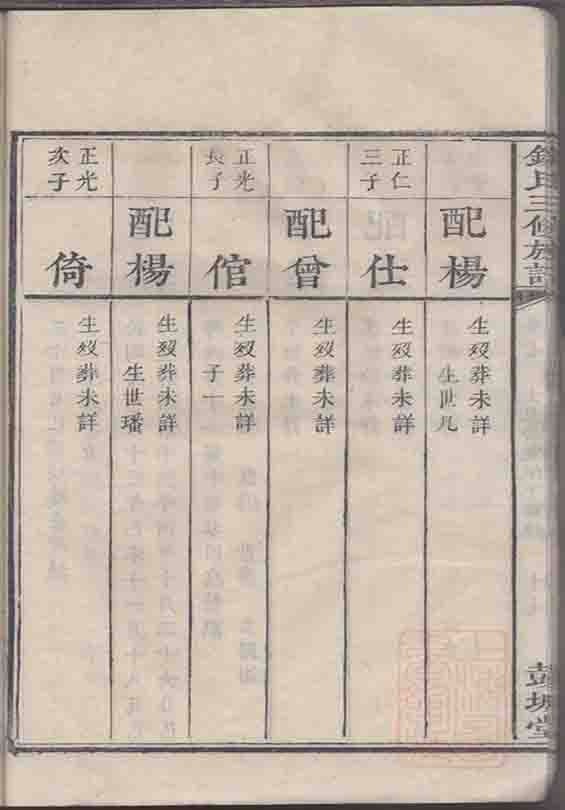 氏三修族譜
彭城堂
配楊
生歿葬未詳
生世凡
正仁
三子
仕
生歿葬未詳
配曾
生歿葬未詳
正光
長子
倌
生歿葬未詳
子一
配楊
生歿葬未詳
生世璠
正光
次子
倚
生歿葬未詳